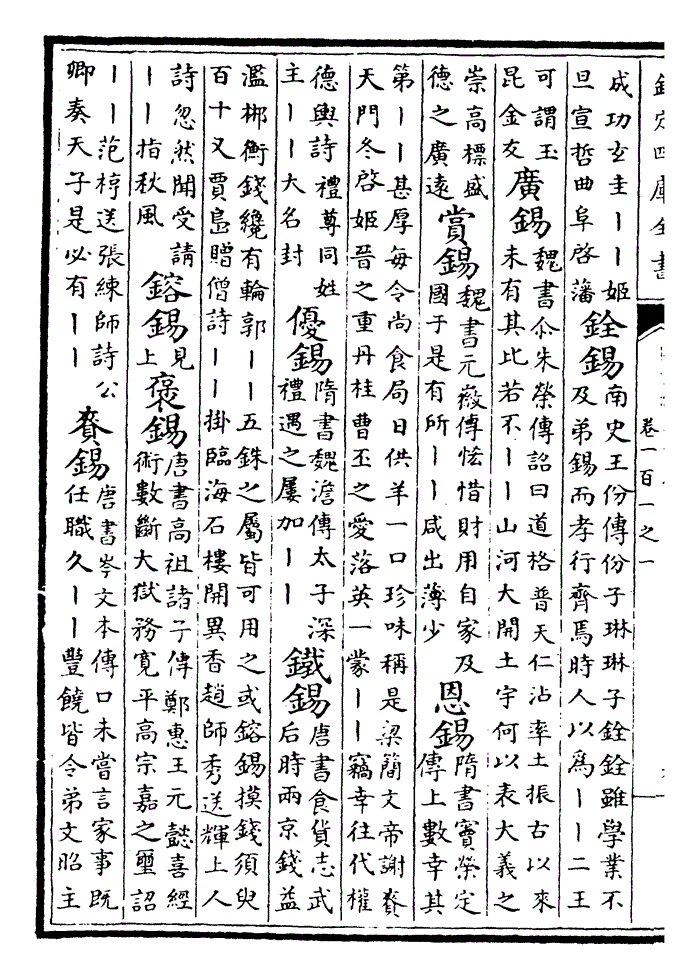 欽定四庫全書
卷一百一之一
成功玄圭｜｜姬
旦宣哲曲阜啓藩
銓錫
南史王份傳份子琳琳子銓銓雖學業不
及弟錫而孝行齊焉時人以爲｜｜二王
可謂玉
昆金友
廣錫
魏書尒朱榮傳詔曰道格普天仁沾率土振古以來
未有其比若不｜｜山河大開土宇何以表大義之
崇高標盛
德之廣遠
賞錫
魏書元嶶傳恡惜財用自家及
國子是有所｜｜咸出薄少
恩錫
隋書竇榮定
傳上數幸其
第｜｜甚厚每令尚食局日供羊一口珍味稱是梁簡文帝謝賚
天門冬啓姬晉之重丹桂曹丕之愛落英一蒙｜｜竊幸往代權
德輿詩禮尊同姓
主｜｜大名封
優錫
隋書魏澹傳太子深
禮遇之屢加｜｜
鐵錫
唐書食貨志武
后時兩京錢益
濫郴衡錢纔有輪郭｜｜五銖之屬皆可用之或鎔錫摸錢須臾
百十又賈島贈僧詩｜｜掛臨海石樓開異香趙師秀送輝上人
詩忽然聞受請
｜｜指秋風
鎔錫
見
上
褒錫
唐書高祖諸子傳鄭惠王元懿喜經
術數斷大獄務寬平高宗嘉之璽詔
｜｜范梈送張練師詩公
卿奏天子是必有｜｜
賚錫
唐書岑文本傳口未嘗言家事既
任職久｜｜豐饒皆令弟文昭主